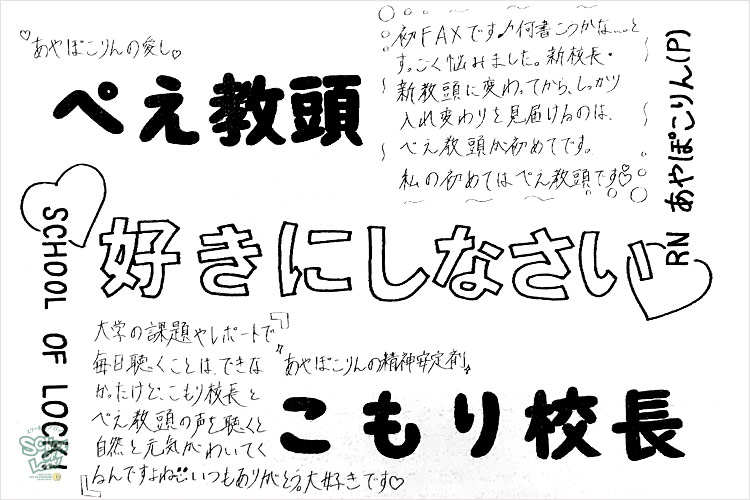 ♡あやぽこりんの愛し♡
ぺえ教頭
初FAXです♪何書こうかな……と
すっごく悩みました。新校長・
新教頭に変わってから、しっかり
入れ変わりを見届けるのは、
ぺえ教頭が初めてです。
私の初めてはぺえ教頭です♡
RN あやぽこりん(P)
SCHOOL OF LOCK!
好きにしなさい
大学の課題やレポートで
毎日聴くことは、できな
かったけど、こもり校長と
ぺえ教頭の声を聴くと
自然と元気がわいてく
るんですよね いつもありがとう。大好きです♡
"あやぽこりんの精神安定剤"
こもり校長